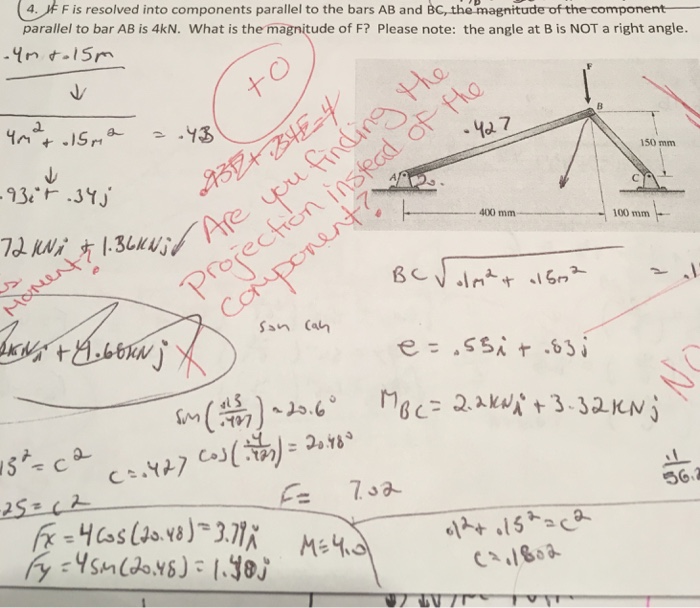 4. If F is resolved into components parallel to the bars AB and BC, the magnitude of the component
parallel to bar AB is 4kN. What is the magnitude of F? Please note: the angle at B is NOT a right angle.
.4m + .15m
+0
4m² + .15m² = .43
.93i + .34j
72 KNi + 1.36KNj
Moment?
.932 + .345=4
Are you finding the
projection instead of the
component?
F
B
.427
150 mm
A
C
400 mm
100 mm
BC √.1m² + .15m² =
e = .55i + .83j
MBC = 2.2KNi + 3.32KNj
NO
KNi + 1.66KNj X
sin(.15/.427) = 20.6°
cos(.4/.427) = 20.48°
15² = c²
c = .427
25 = c²
F = 7.02
Fx = 4cos(20.48) = 3.79i
Fy = 4sin(20.48) = 1.40j
M = 4.0
.1² + .15² = c²
c = .1802